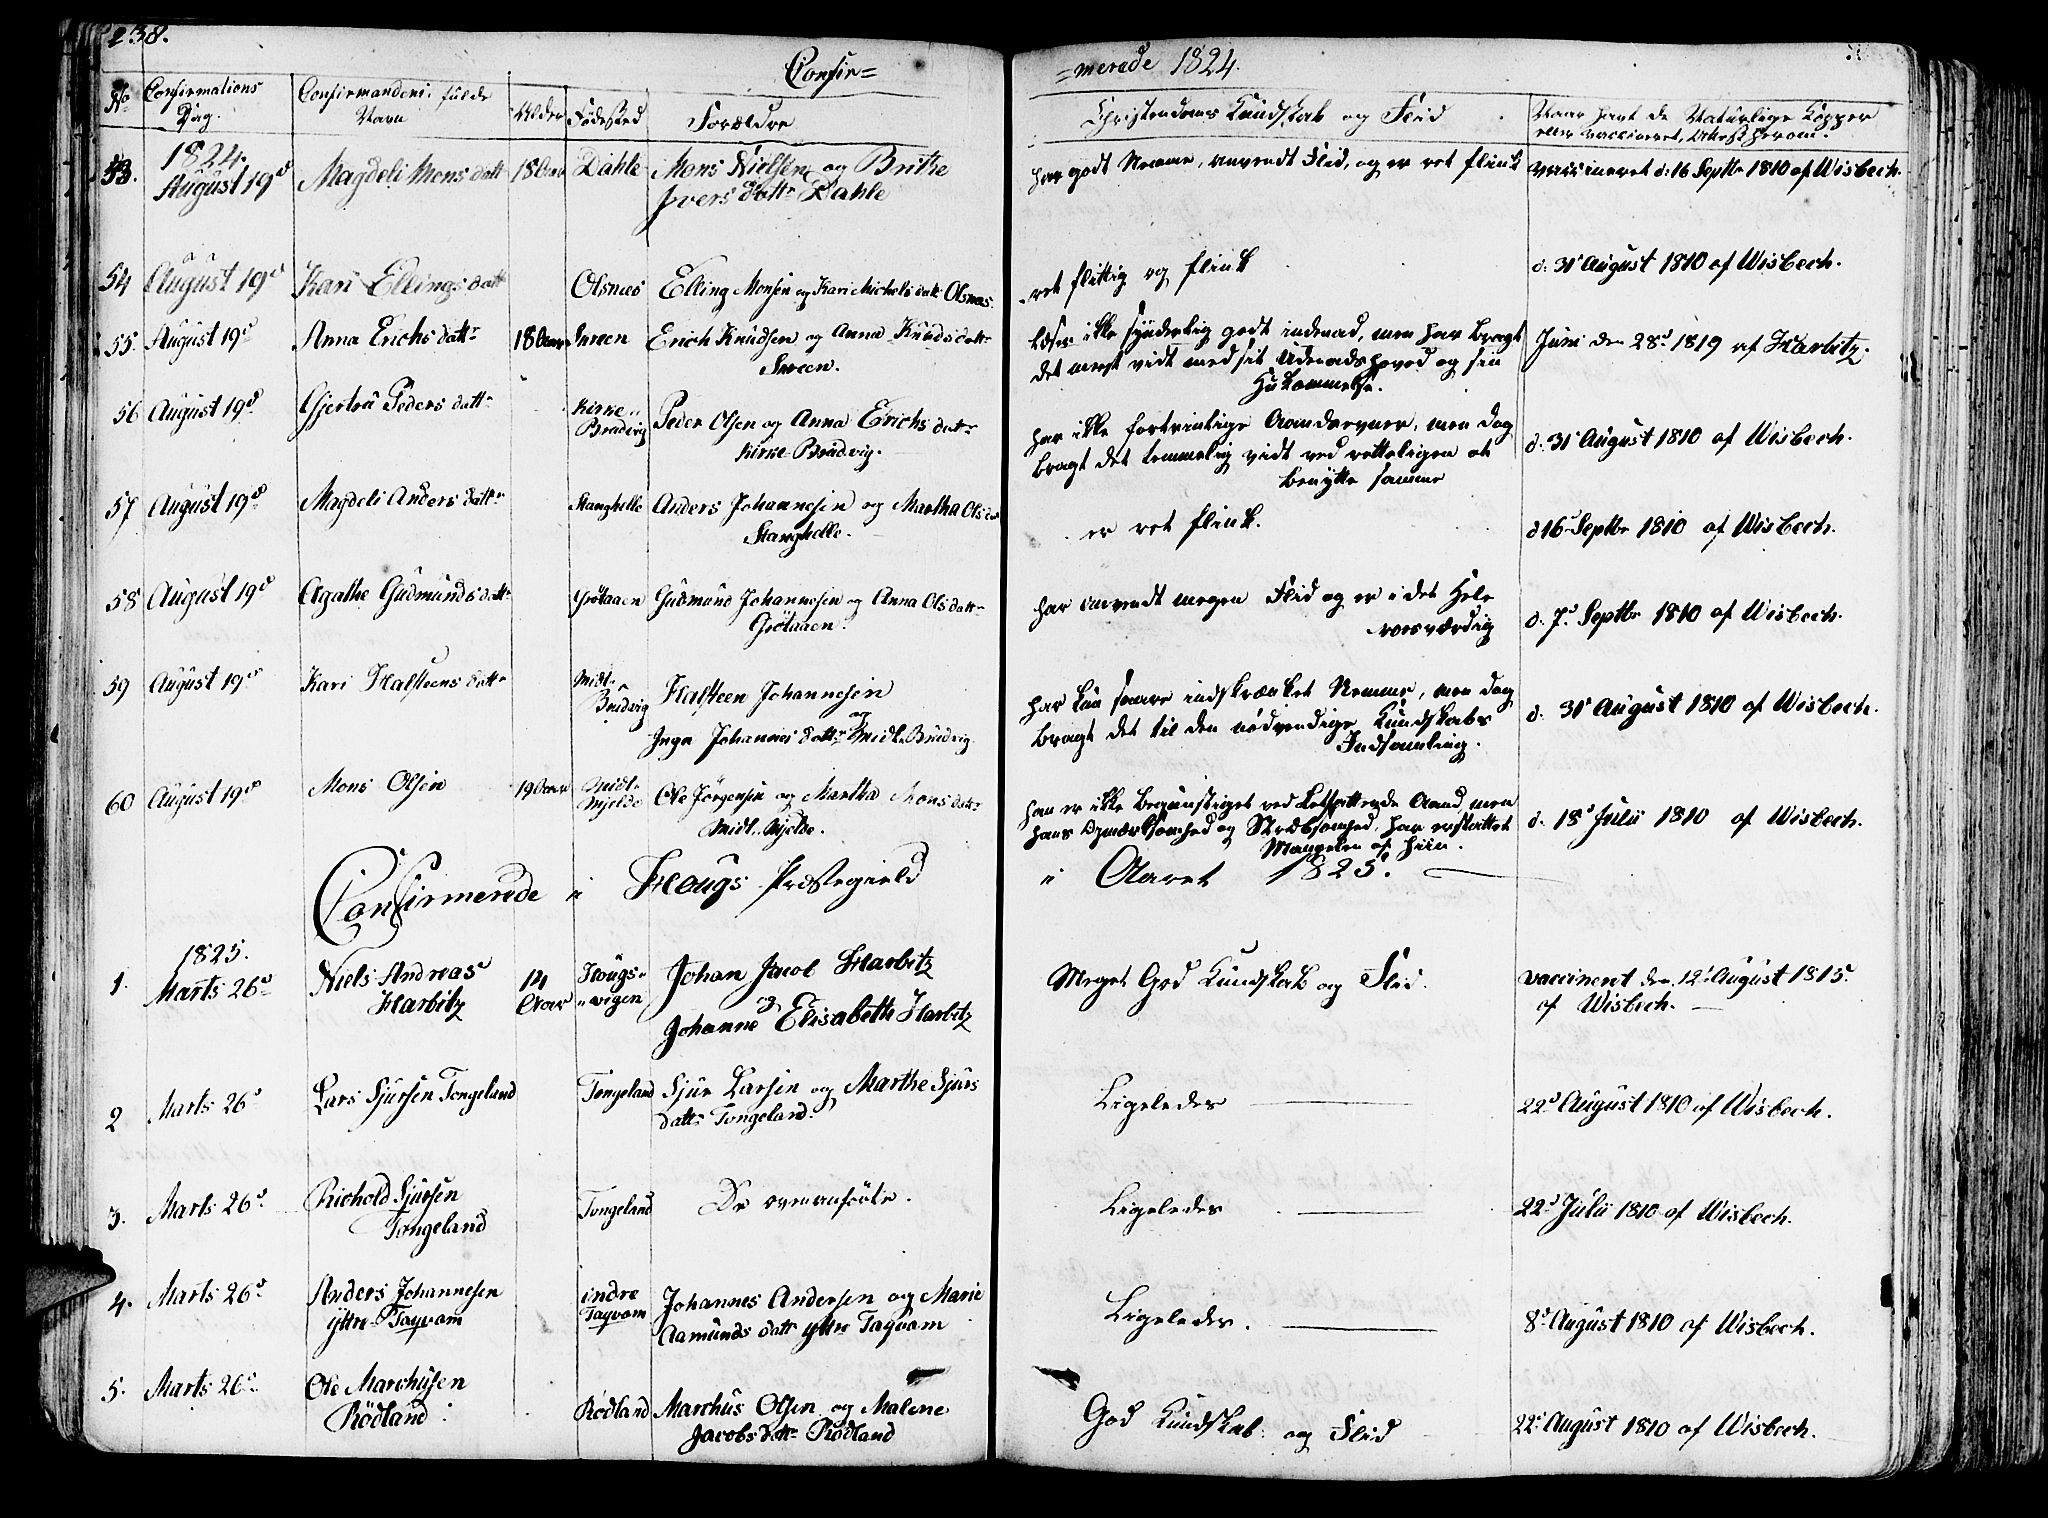 238.
Confir=
=merede 1824.
No
Confirmations Dag.
Confirmandens fulde Navn
Alder
Fødested
Forældre
Christendoms Kundskab og Flid
Naar havt de Naturlige Kopper
eller vaccineret, Attest herom.
1824.
53. August 19d Magdeli Monsdatt 18 Aar Dahle Mons Nielsen og Brithe
Iversdattr Dahle
har godt Nemme, anvendt Flid, og er ret flink
vaccineret d. 16 Septbr 1810 af Wisbech.
54 August 19d Kari Ellingsdatt Olsnæs Elling Monsen og Kari Michelsdatt Olsnæs.
ret flittig og flink
d. 31 August 1810 af Wisbech.
55. August 19d Anna Erichsdattr 18 Aar Sneen Erich Knudsen og Anna Knudsdattr
Sneen.
læser ikke synderlig godt indenad, men har bragt
det meget vidt med sit Udenads hoved og sin
Hukommelse.
Juni den 28d 1819 af Harbitz.
56 August 19d Gjertrú Pedersdattr Kirke-
Bradvig Peder Olsen og Anna Erichsdattr
Kirke-Bradvig.
har ikke fortrinlige Aandsevner, men dog
bragt det temmelig vidt ved retteligen at
benytte samme
d. 31 August 1810 af Wisbech.
57 August 19d Magdeli Andersdattr Stanghelle Anders Johannesen og Martha Olsdatt
Stanghelle.
er ret flink.
d 16 Septbr 1810 af Wisbech.
58 August 19d Agathe Gudmundsdattr Grötaaen Gudmund Johannesen og Anna Olsdattr
Grötaaen.
har anvendt megen Flid og er i det Hele
roesværdig
d. 7d Septbr 1810 af Wisbech.
59 August 19d Kari Halsteensdattr Midt-
Brudvig Halsteen Johannesen
og
Inga Johannesdattr Midt-Brudvig.
har kun saare indskrænket Nemme, men dog
bragt det til den nødvendige Kundskabs
Indsamling.
d. 31 August 1810 af Wisbech.
60 August 19d Mons Olsen 19 Aar Midt-
Mjelde Ole Jörgensen og Martha Monsdattr
Midt-Mjelde.
han er ikke begunstiget ved letfattende Aand, men
hans Opmærksomhed og Stræbsomhed, har erstattet
Mangelen af hiin.
d. 18d Julii 1810 af Wisbech.
Confirmerede i Hougs Præstegield i Aaret 1825.
1825.
1. Marts 26d Niels Andreas
Harbitz 14
Aar Hougs-
vigen Johan Jacob Harbitz
og
Johanne Elisabeth Harbitz
Meget God Kundskab og Flid.
vaccineret den 12 August 1815.
af Wisbech.
2 Marts 26d Lars Sjursen Tongeland Tongeland Sjur Larsen og Marthe Sjurs
datt Tongeland.
Ligeledes
22d August 1810 af Wisbech.
3. Marts 26d Richold Sjursen
Tongeland Tongeland De ovenanførte.
Ligeledes
22d Julii 1810 af Wisbech.
4. Marts 26d Anders Johannesen
yttre-Taqvam indre
Taqvam Johannes Andersen og Marie
Aamundsdatt yttre Taqvam
Ligeledes.
8d August 1810 af Wisbech.
5. Marts 26d Ole Marchusen
Rödland. Rödland Marchus Olsen og Malene
Jacobsdattr Rödland
God Kundskab og Flid
22d August 1810 af Wisbech.